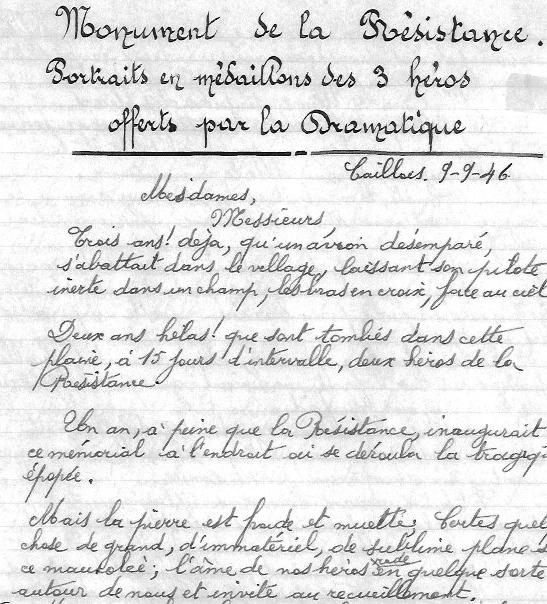 Monument de la Résistance.
Portraits en médaillons des 3 héros
offerts par la Dramatique
9-9-46
Mesdames,
Messieurs
Trois ans! déja, qu'un avion désemparé,
s'abattait dans le village, laissant son pilote
inerte dans un champ, les bras en croix, face au ciel
Deux ans hélas! que sont tombés dans cette
plaine, à 15 jours d'intervalle, deux héros de la
Résistance.
Un an, à peine que la Résistance, inaugurait
ce mémorial à l'endroit où se déroula la tragiq
épopée.
Mais la pierre est froide et muette; Certes quel
chose de grand, d'immatériel, de sublime plane s
ce mausolée; l'âme de nos héros rode en quelque sorte
autour de nous et invite au recueillement.